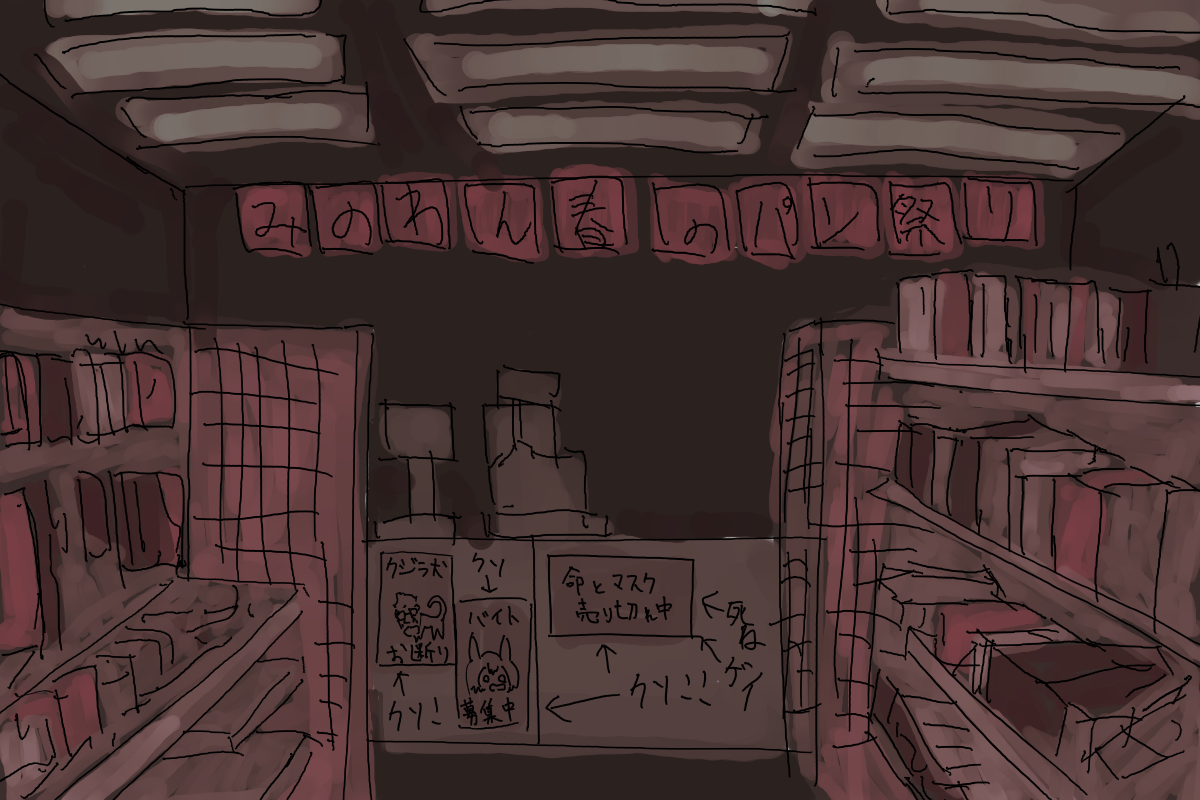 みのわん春のパン祭り
クジラ犬
お断り
クソ
バイト
募集中
命とマスク
売り切れ中
死ね
ゲイ
クソ!
クソ!!